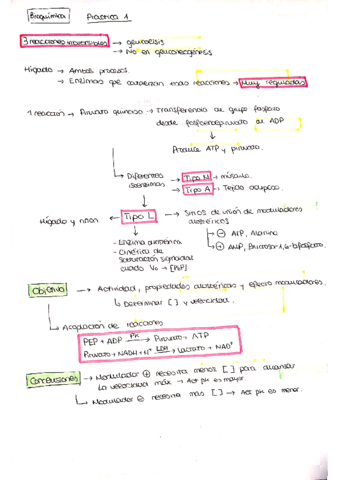 Bioquímica Práctica 1
3 reacciones irreversibles → glucólisis
→ No en gluconeogénesis
Hígado → Ambos procesos.
→ Enzimas que catalizan estas reacciones → Muy reguladas
1 reacción → Piruvato quinasa → Transferencia de grupo fosforo
desde fosfoenolpiruvato al ADP
Produce ATP y piruvato.
Diferentes isoenzimas → Tipo M → músculo.
→ Tipo A → Tejido adiposo.
Hígado y riñón ← Tipo L → Sitios de unión de moduladores
alostéricos
→ ⊖ ATP, Alanina
→ ⊕ AMP, fructosa-1,6-bifosfato.
- Enzima alostérica
- Cinética de
saturación sigmoidal
cuando V₀ → [PEP]
Objetivo → Actividad, propiedades alostéricas y efecto moduladores.
↳ Determinar [ ] y velocidad.
↳ Acoplación de reacciones
PEP + ADP PK → Piruvato + ATP
Piruvato + NADH + H⁺ LDH → Lactato + NAD⁺
Conclusiones → Modulador ⊕ necesita menos [ ] para alcanzar
la velocidad máx → Act pk es mayor.
↳ Modulador ⊖ necesita más [ ] → Act pk es menor.